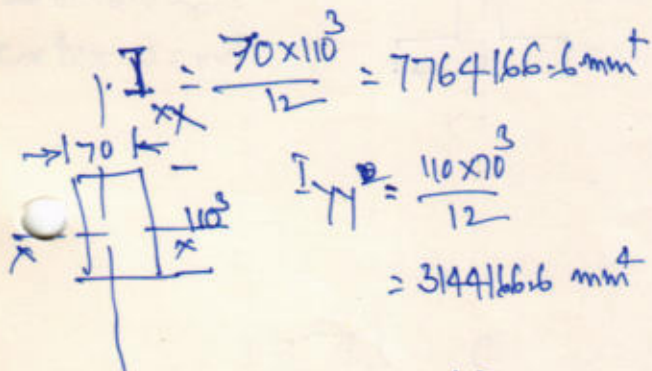 I_xx = 70×110³/12 = 7764166.6 mm⁴
→|70|←
110³
x x
I_yy = 110×70³/12
= 3144166.6 mm⁴